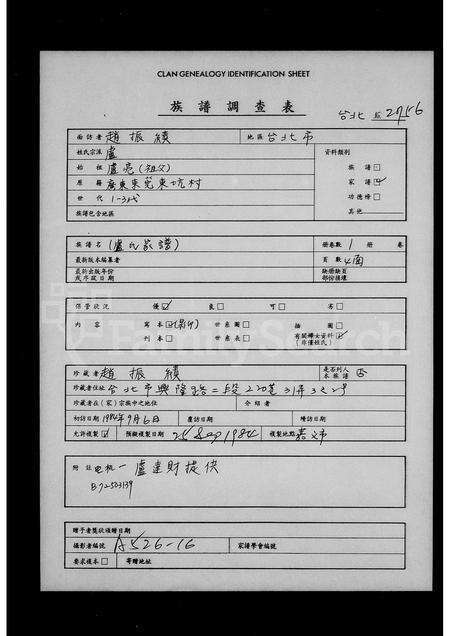 CLAN GENEALOGY IDENTIFICATION SHEET
族譜調查表
台北 2756
面訪者 趙振績 地區 台北市
姓氏宗派 盧 資料類別
始祖 盧亮(祖父) 族譜
原籍 廣東東莞東坑村 家譜 ✓
世代 1-3代 功德榜
族譜包含地區 其他
族譜名 (盧氏家譜) 冊卷數 1 冊 卷
最新版本編纂者 頁數 4面
最新出版年份或序跋日期 缺冊缺頁部份損壞
保管狀況 優 ✓ 良 可 劣
內容 寫本 ✓ (影印) 世系圖 插圖
刊本 世系表 有關婦女資料 ✓ (非僅姓氏)
珍藏者 趙振績 是否列入本族譜 否
珍藏者住址 台北市興隆路二段220巷31弄3之2号
珍藏者在(家)宗族中之地位 介紹者
初訪日期 1984年9月6日 覆訪日期 增訪日期
允許複製 ✓ 預擬複製日期 25 Sep 1984 複製地點 嘉市
附註 盧達財提供
B72503139
贈予者獎狀頒贈日期
攝影者編號 A526-16 家譜學會編號
要求複本 寄贈地址
FamilySearch